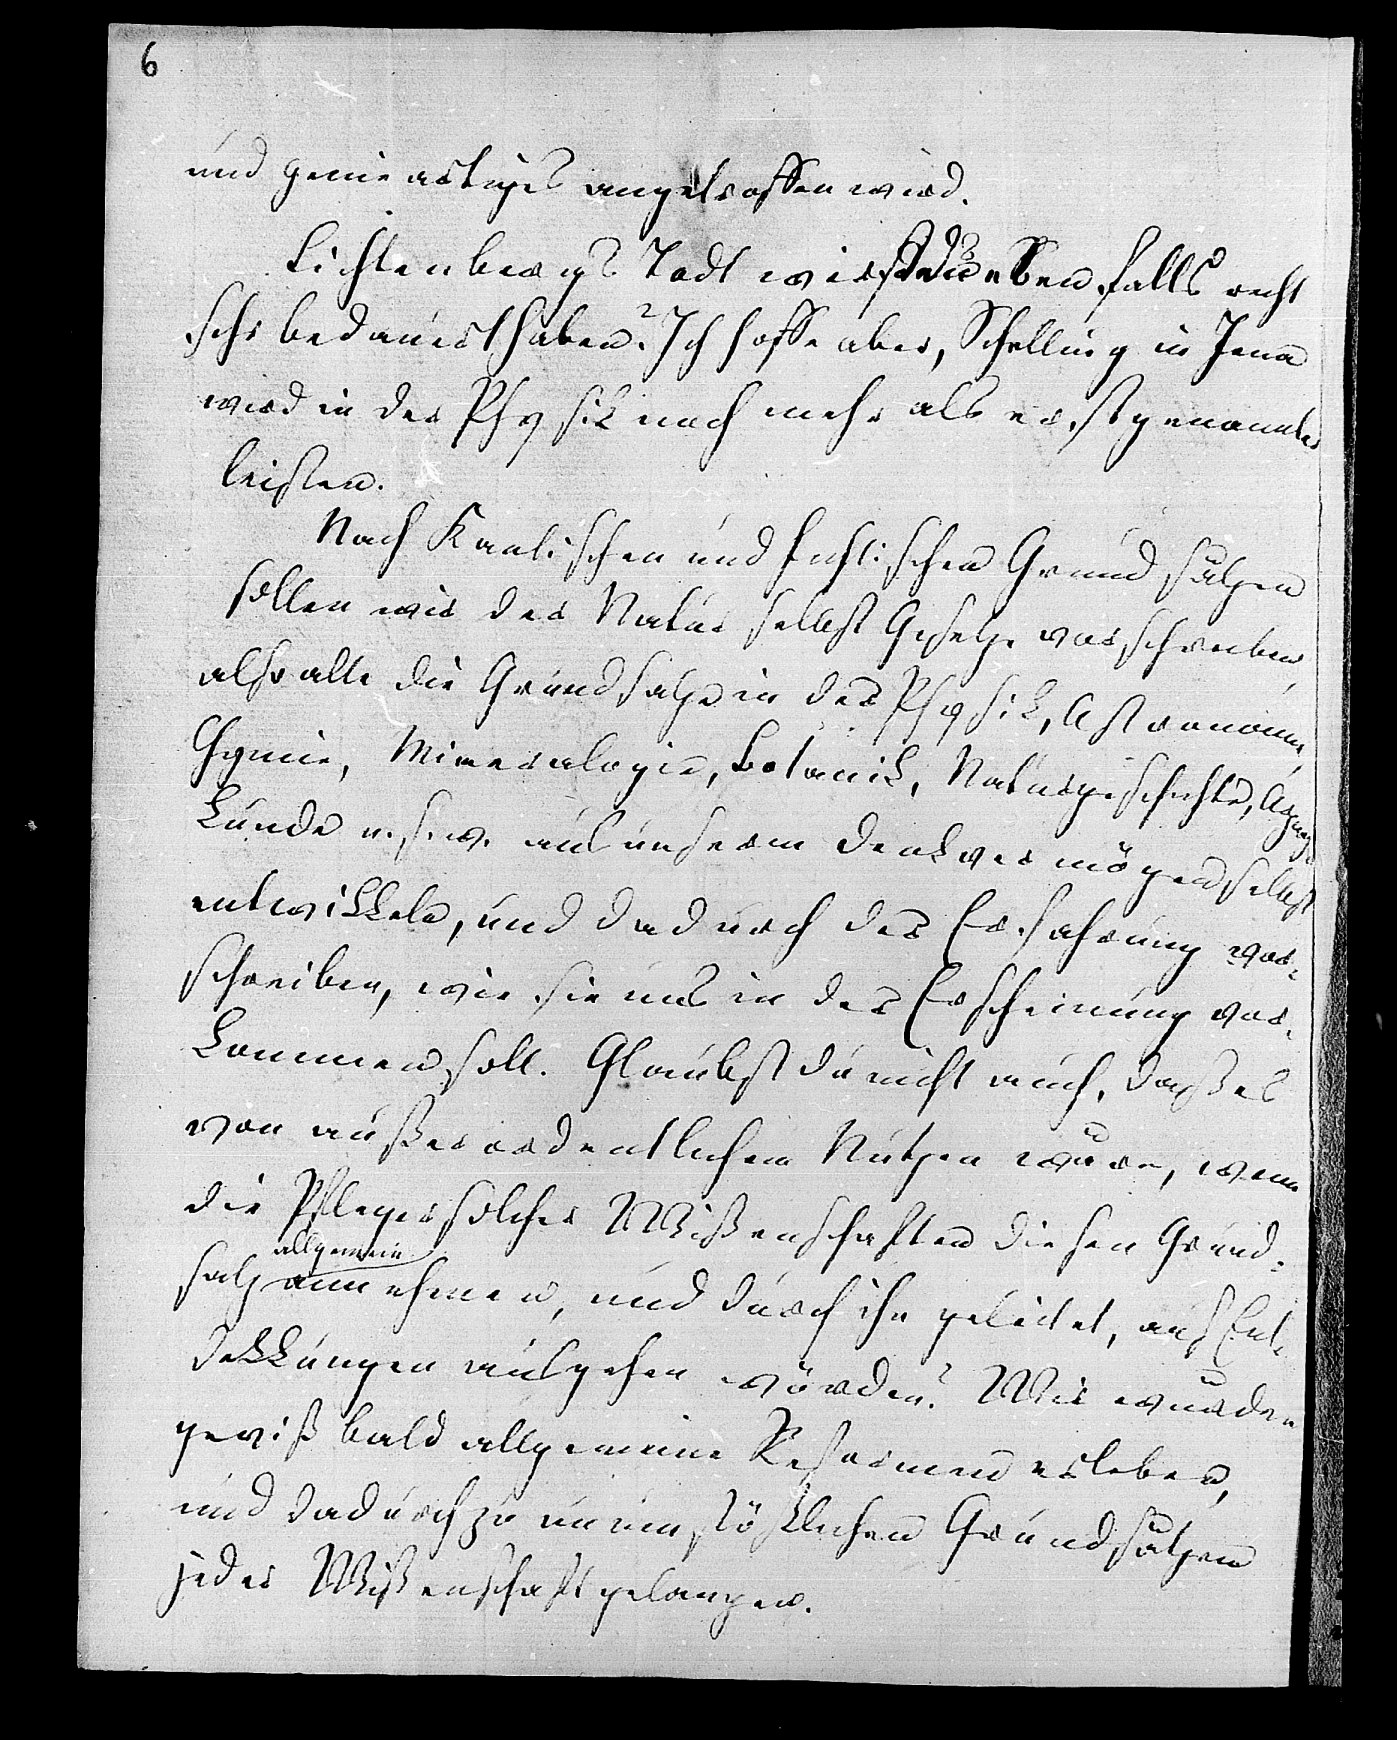 6
und genieartiges angetroffen wird.
Lichtenbergs Todt wirst du ebenfalls recht
sehr bedauert haben? Ich hoffe aber, Schelling in Jena
wird in der Physik noch mehr als erstgenannter
leisten.
Nach Kantischen und Fichtischen Grundsätzen
sollen wir der Natur selbst Gesetze vorschreiben,
also alle die Grundsatze in der Physik, Astronomie,
Chymie, Mineralogie, Botanik, Naturgeschichte, Arzney
kunde u. s. w. aus unserm Denkvermögen selbst
entwikkeln, und dadurch der Erfahrung vor-
schreiben, wie sie uns in der Erscheinung vor-
kommen soll. Glaubst du nicht auch, daß es
von außerordentlichem Nutzen wäre, wenn
die Pfleger solcher Wißenschaften diesen Grund-
allgemein
satz annehmen, und durch ihn geleitet, auf Ent-
dekkungen ausgehen würden? Wir würden
gewiß bald allgemeine Reformen erleben,
und dadurch zu unumstößlichen Grundsätzen
jeder Wißenschaft gelangen.